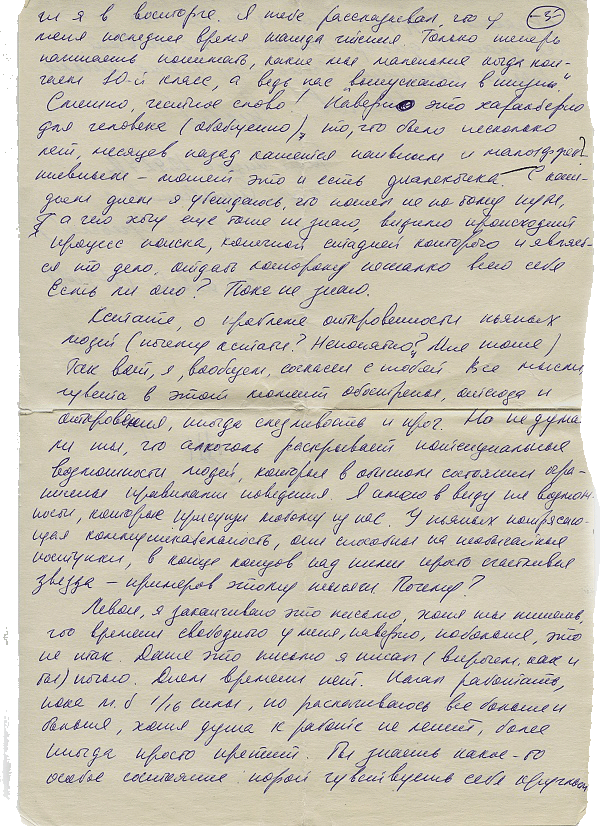 ги я в восторге. Я тебе рассказывал, что у -3-
меня последнее время жажда чтения. Только теперь
начинаешь понимать, какие мы маленькие когда кон-
чаем 10-й класс, а ведь нас "выпускают в жизнь"
Смешно, честное слово! Наверно это характерно
для человека (обобщенно), то, что было несколько
лет, месяцев назад кажется наивным и
– может это и есть диалектика. С каж-
дым днем я убеждаюсь, что пошел не по тому пути,
а чего хочу еще тоже не знаю, видимо происходит
процесс поиска, конечной стадией которого и являет-
ся то дело, отдать которому не жалко всего себя
Есть ли оно? Пока не знаю.
Кстати, о проблеме откровенности пьяных
людей (почему кстати? Непонятно? Мне тоже)
Так вот, я, вообщем, согласен с тобой Все мысли
чувства в этот момент обострены, отсюда и
откровения, иногда слезливость и проч. Но не дума
ли ты, что алкоголь раскрывает потенциальные
возможности людей, которые в обычном состоянии огра-
ничены правилами поведения. Я имею в виду те возмож-
ности, которые присущи любому из нас. У пьяных потрясаю-
щая коммуникабельность, они способны на необычайные
поступки, в конце концов над ними просто счастливая
звезда – примеров этому тысячи Почему?
Левон, я заканчиваю это письмо, хотя ты пишешь,
что времени свободного у меня, наверно, побольше, это
не так. Даже это письмо я писал (впрочем, как и
ты) ночью. Днем времени нет. Начал работать,
пока м.б 1/16 силы, но раскачиваюсь все больше и
больше, хотя душа к работе не лежит, более
иногда просто претит. Ты знаешь какое-то
особое состояние: порой чувствуешь себя круглым